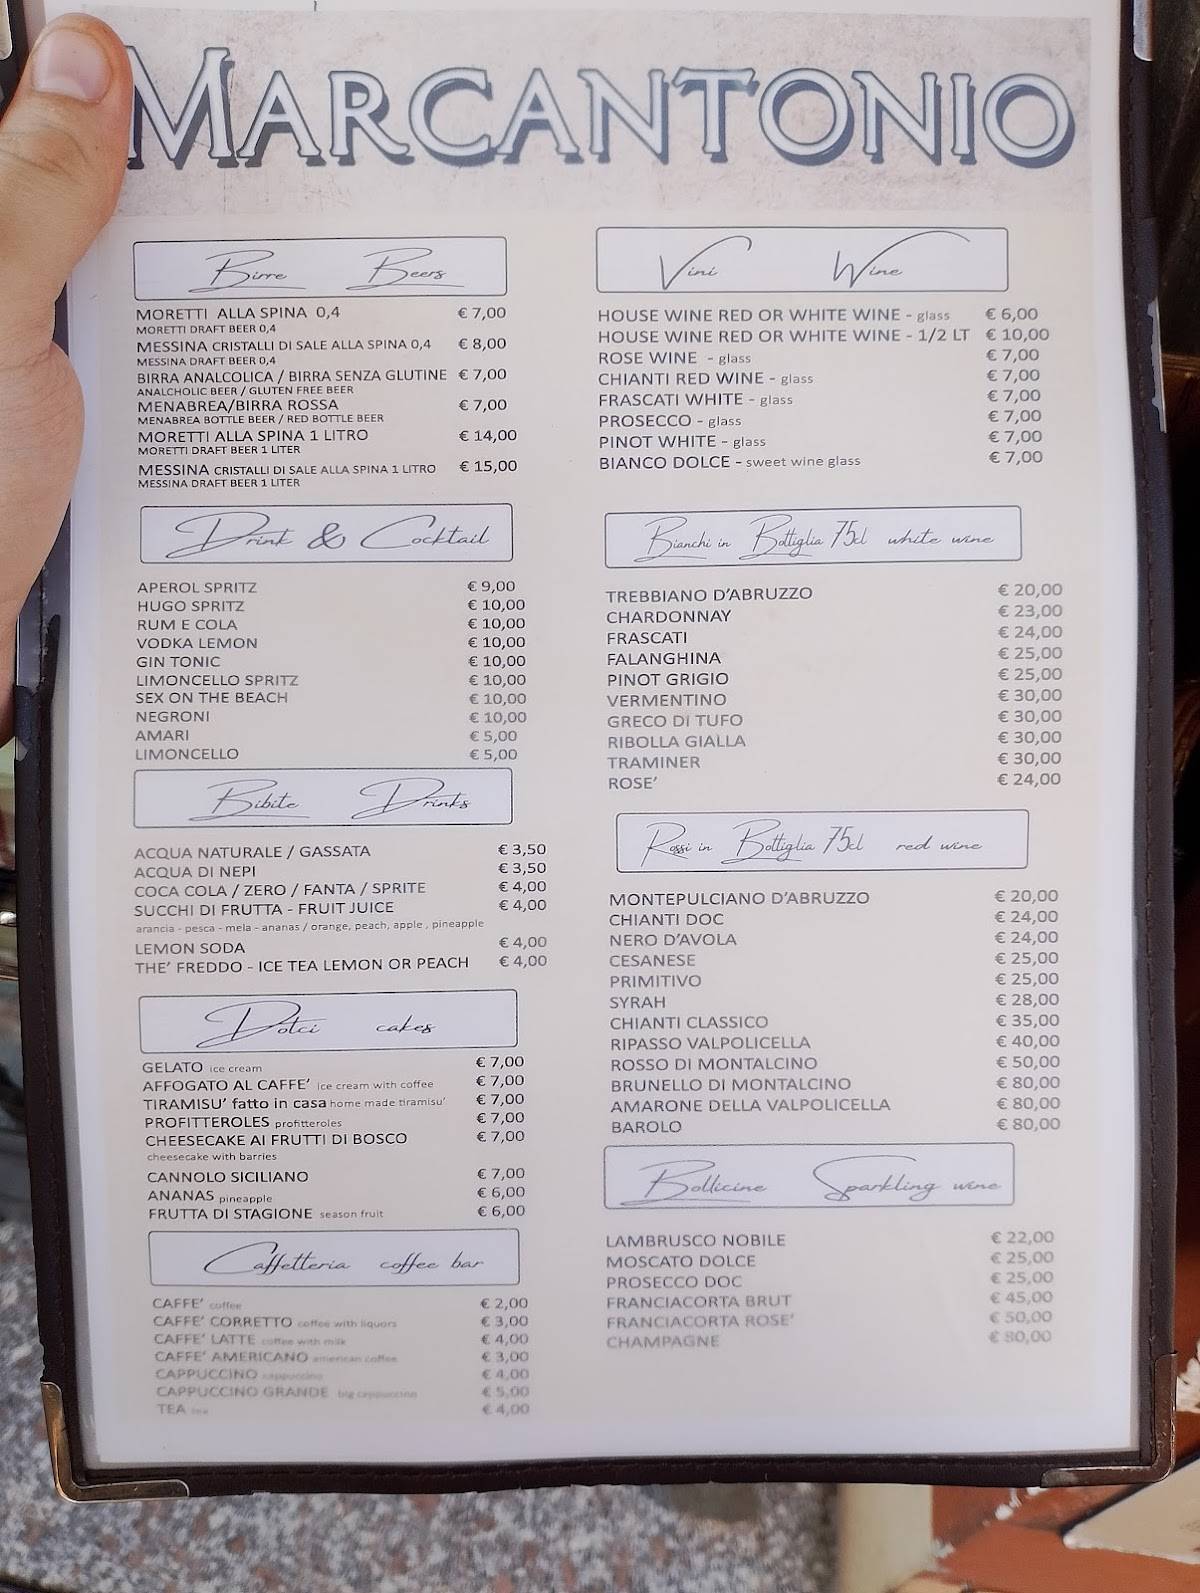 MARCANTONIO
Birre Beers
MORETTI ALLA SPINA 0,4 € 7,00
MORETTI DRAFT BEER 0,4
MESSINA CRISTALLI DI SALE ALLA SPINA 0,4 € 8,00
MESSINA DRAFT BEER 0,4
BIRRA ANALCOLICA / BIRRA SENZA GLUTINE € 7,00
ANALCHOLIC BEER / GLUTEN FREE BEER
MENABREA/BIRRA ROSSA € 7,00
MENABREA BOTTLE BEER / RED BOTTLE BEER
MORETTI ALLA SPINA 1 LITRO € 14,00
MORETTI DRAFT BEER 1 LITER
MESSINA CRISTALLI DI SALE ALLA SPINA 1 LITRO € 15,00
MESSINA DRAFT BEER 1 LITER
Drink & Cocktail
APEROL SPRITZ € 9,00
HUGO SPRITZ € 10,00
RUM E COLA € 10,00
VODKA LEMON € 10,00
GIN TONIC € 10,00
LIMONCELLO SPRITZ € 10,00
SEX ON THE BEACH € 10,00
NEGRONI € 10,00
AMARI € 5,00
LIMONCELLO € 5,00
Bibite Drinks
ACQUA NATURALE / GASSATA € 3,50
ACQUA DI NEPI € 3,50
COCA COLA / ZERO / FANTA / SPRITE € 4,00
SUCCHI DI FRUTTA - FRUIT JUICE € 4,00
arancia - pesca - mela - ananas / orange, peach, apple , pineapple
LEMON SODA € 4,00
THE' FREDDO - ICE TEA LEMON OR PEACH € 4,00
Dolci cakes
GELATO ice cream € 7,00
AFFOGATO AL CAFFE' ice cream with coffee € 7,00
TIRAMISU' fatto in casa home made tiramisu' € 7,00
PROFITTEROLES profitteroles € 7,00
CHEESECAKE AI FRUTTI DI BOSCO € 7,00
cheesecake with barries
CANNOLO SICILIANO € 7,00
ANANAS pineapple € 6,00
FRUTTA DI STAGIONE season fruit € 6,00
Caffetteria coffee bar
CAFFE' coffee € 2,00
CAFFE' CORRETTO coffee with liquors € 3,00
CAFFE' LATTE coffee with milk € 4,00
CAFFE' AMERICANO american coffee € 3,00
CAPPUCCINO cappuccino € 4,00
CAPPUCCINO GRANDE big cappuccino € 5,00
TEA tea € 4,00
Vini Wine
HOUSE WINE RED OR WHITE WINE - glass € 6,00
HOUSE WINE RED OR WHITE WINE - 1/2 LT € 10,00
ROSE WINE - glass € 7,00
CHIANTI RED WINE - glass € 7,00
FRASCATI WHITE - glass € 7,00
PROSECCO - glass € 7,00
PINOT WHITE - glass € 7,00
BIANCO DOLCE - sweet wine glass € 7,00
Bianchi in Bottiglia 75cl white wine
TREBBIANO D'ABRUZZO € 20,00
CHARDONNAY € 23,00
FRASCATI € 24,00
FALANGHINA € 25,00
PINOT GRIGIO € 25,00
VERMENTINO € 30,00
GRECO DI TUFO € 30,00
RIBOLLA GIALLA € 30,00
TRAMINER € 30,00
ROSE' € 24,00
Rossi in Bottiglia 75cl red wine
MONTEPULCIANO D'ABRUZZO € 20,00
CHIANTI DOC € 24,00
NERO D'AVOLA € 24,00
CESANESE € 25,00
PRIMITIVO € 25,00
SYRAH € 28,00
CHIANTI CLASSICO € 35,00
RIPASSO VALPOLICELLA € 40,00
ROSSO DI MONTALCINO € 50,00
BRUNELLO DI MONTALCINO € 80,00
AMARONE DELLA VALPOLICELLA € 80,00
BAROLO € 80,00
Bollicine Sparkling wine
LAMBRUSCO NOBILE € 22,00
MOSCATO DOLCE € 25,00
PROSECCO DOC € 25,00
FRANCIACORTA BRUT € 45,00
FRANCIACORTA ROSE' € 50,00
CHAMPAGNE € 80,00